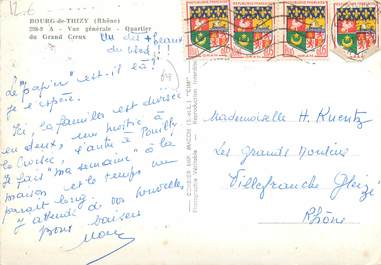 12.€
BOURG-de-THIZY (Rhône)
298-9 A - Vue générale - Quartier
du Grand Creux
Un des + beaux
du bled !!
69
Le "pap'n" est-il là ?
je espère.
Ici, la famille est divisée
en deux, une moitié à
le Croisic, l'autre à Pouilly
Je fais "ma semaine" à la
maison et le temps me
paraît long.
J'attends de vos nouvelles
Gros baisers
COMBIER IMP. MACON (S.-et-L.) "CIM"
Photographie Véritable
Mademoiselle H. Kuentz
Les Grands Moulins
Villefranche Gleizé
Rhône